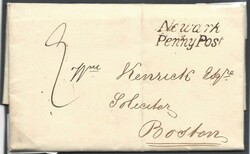 Newark
Penny Post
Kenrick Esqre
Solicitor
Boston